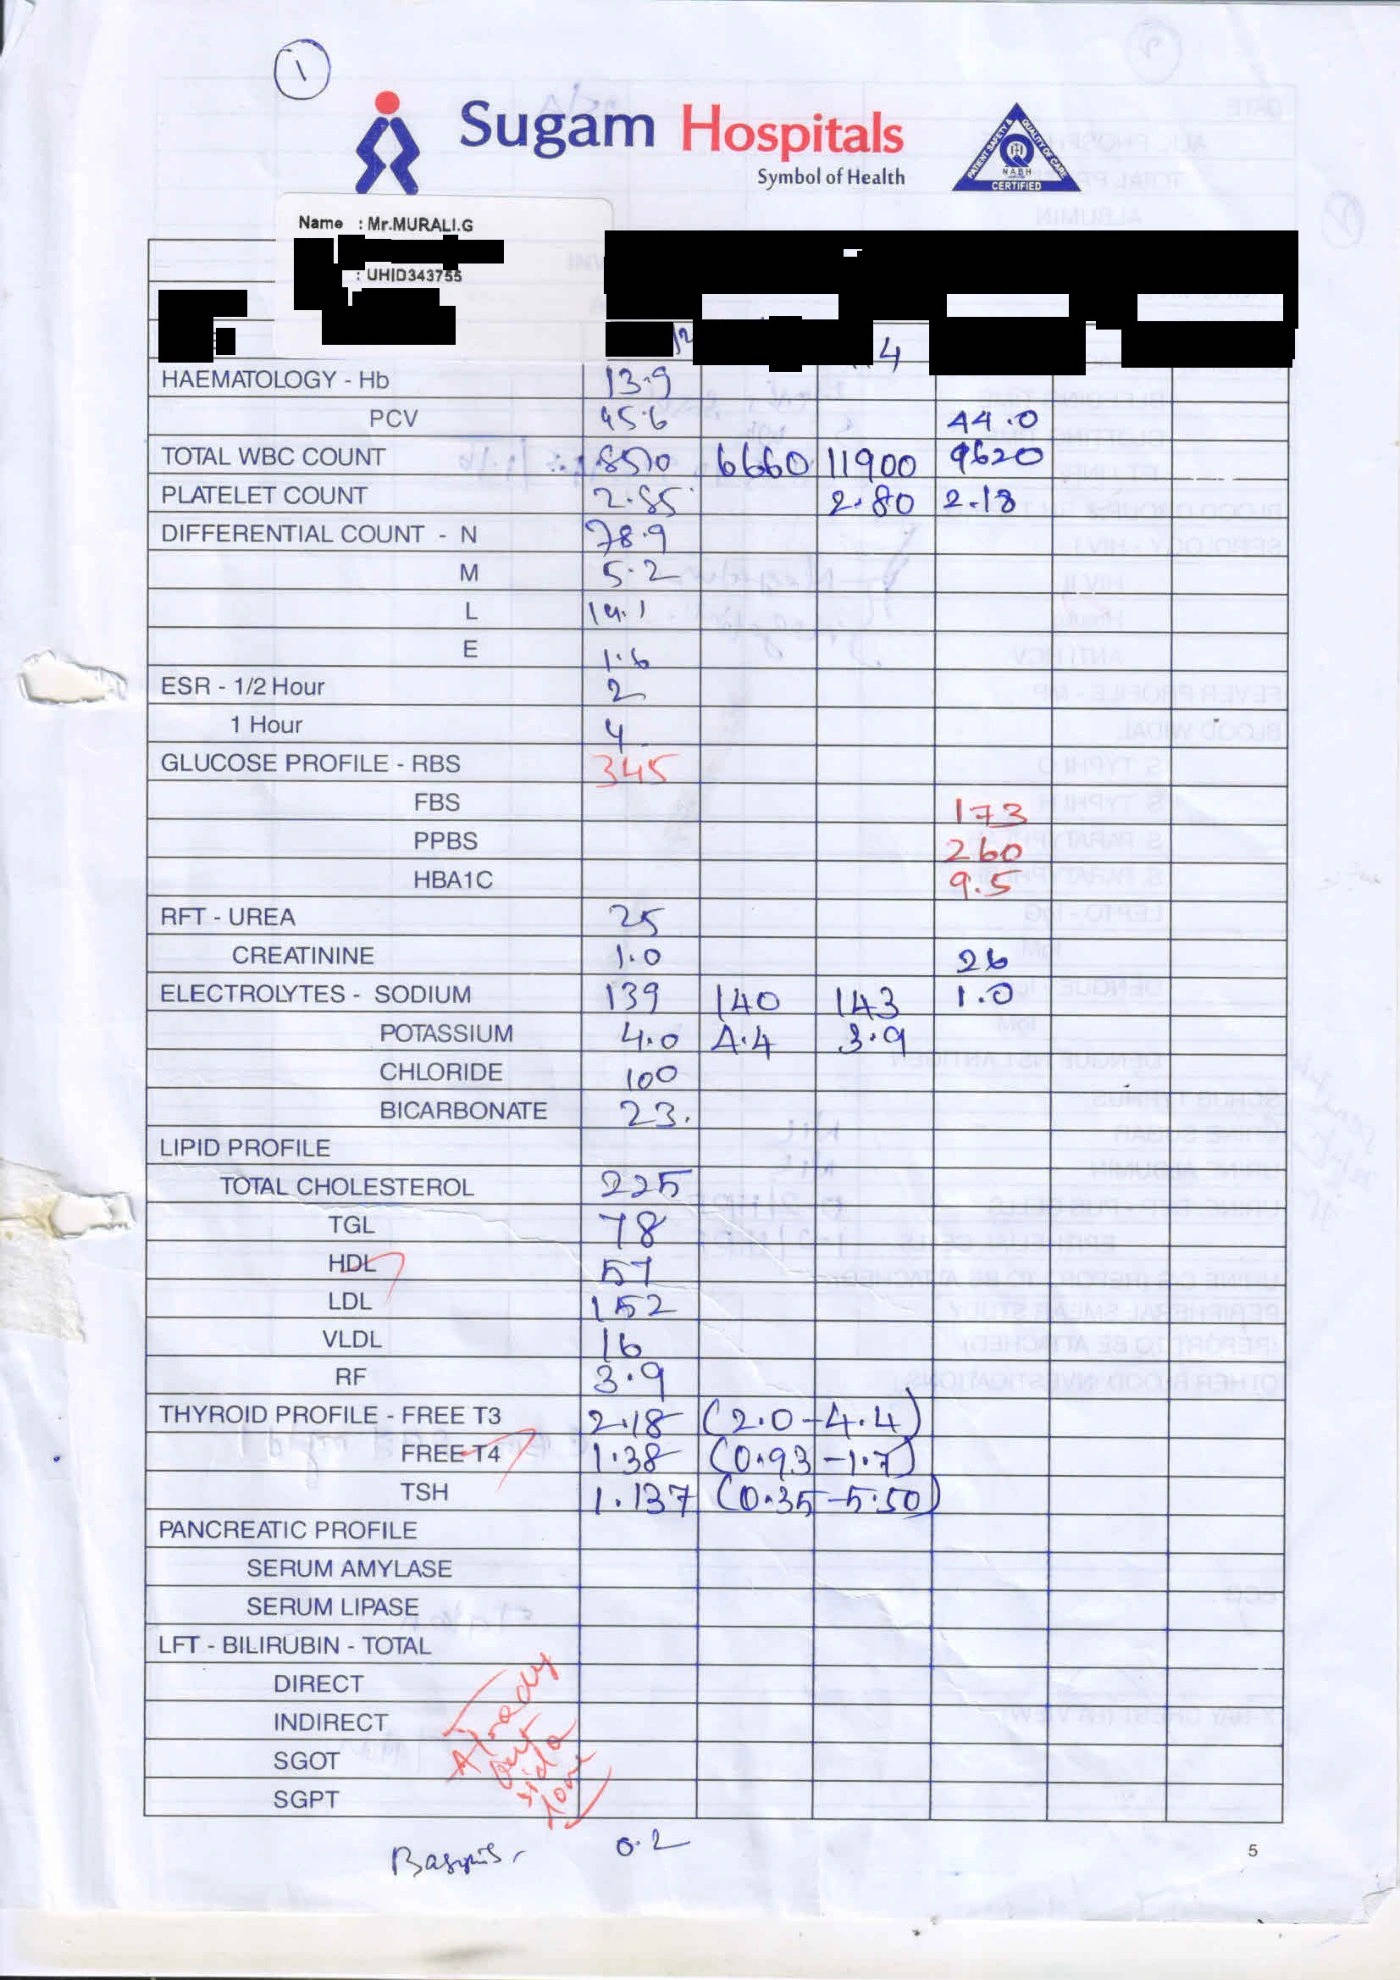 1
Sugam Hospitals
Symbol of Health
PATIENT SAFETY & QUALITY OF CARE
NABH
CERTIFIED
Name : Mr.MURALI.G
: UHID343755
4
HAEMATOLOGY - Hb 13.9
PCV 45.6 44.0
TOTAL WBC COUNT 8510 6660 11900 9620
PLATELET COUNT 2.85 2.80 2.18
DIFFERENTIAL COUNT - N 78.9
M 5.2
L 14.1
E 1.6
ESR - 1/2 Hour 2
1 Hour 4
GLUCOSE PROFILE - RBS 345
FBS 173
PPBS 260
HBA1C 9.5
RFT - UREA 25
CREATININE 1.0 26
ELECTROLYTES - SODIUM 139 140 143 1.0
POTASSIUM 4.0 4.4 3.9
CHLORIDE 100
BICARBONATE 23.
LIPID PROFILE
TOTAL CHOLESTEROL 225
TGL 78
HDL 57
LDL 152
VLDL 16
RF 3.9
THYROID PROFILE - FREE T3 2.18 (2.0-4.4)
FREE T4 1.38 (0.93-1.7)
TSH 1.137 (0.35-5.50)
PANCREATIC PROFILE
SERUM AMYLASE
SERUM LIPASE
LFT - BILIRUBIN - TOTAL
DIRECT
INDIRECT
SGOT
SGPT
Already
out
side
done
0.2
5